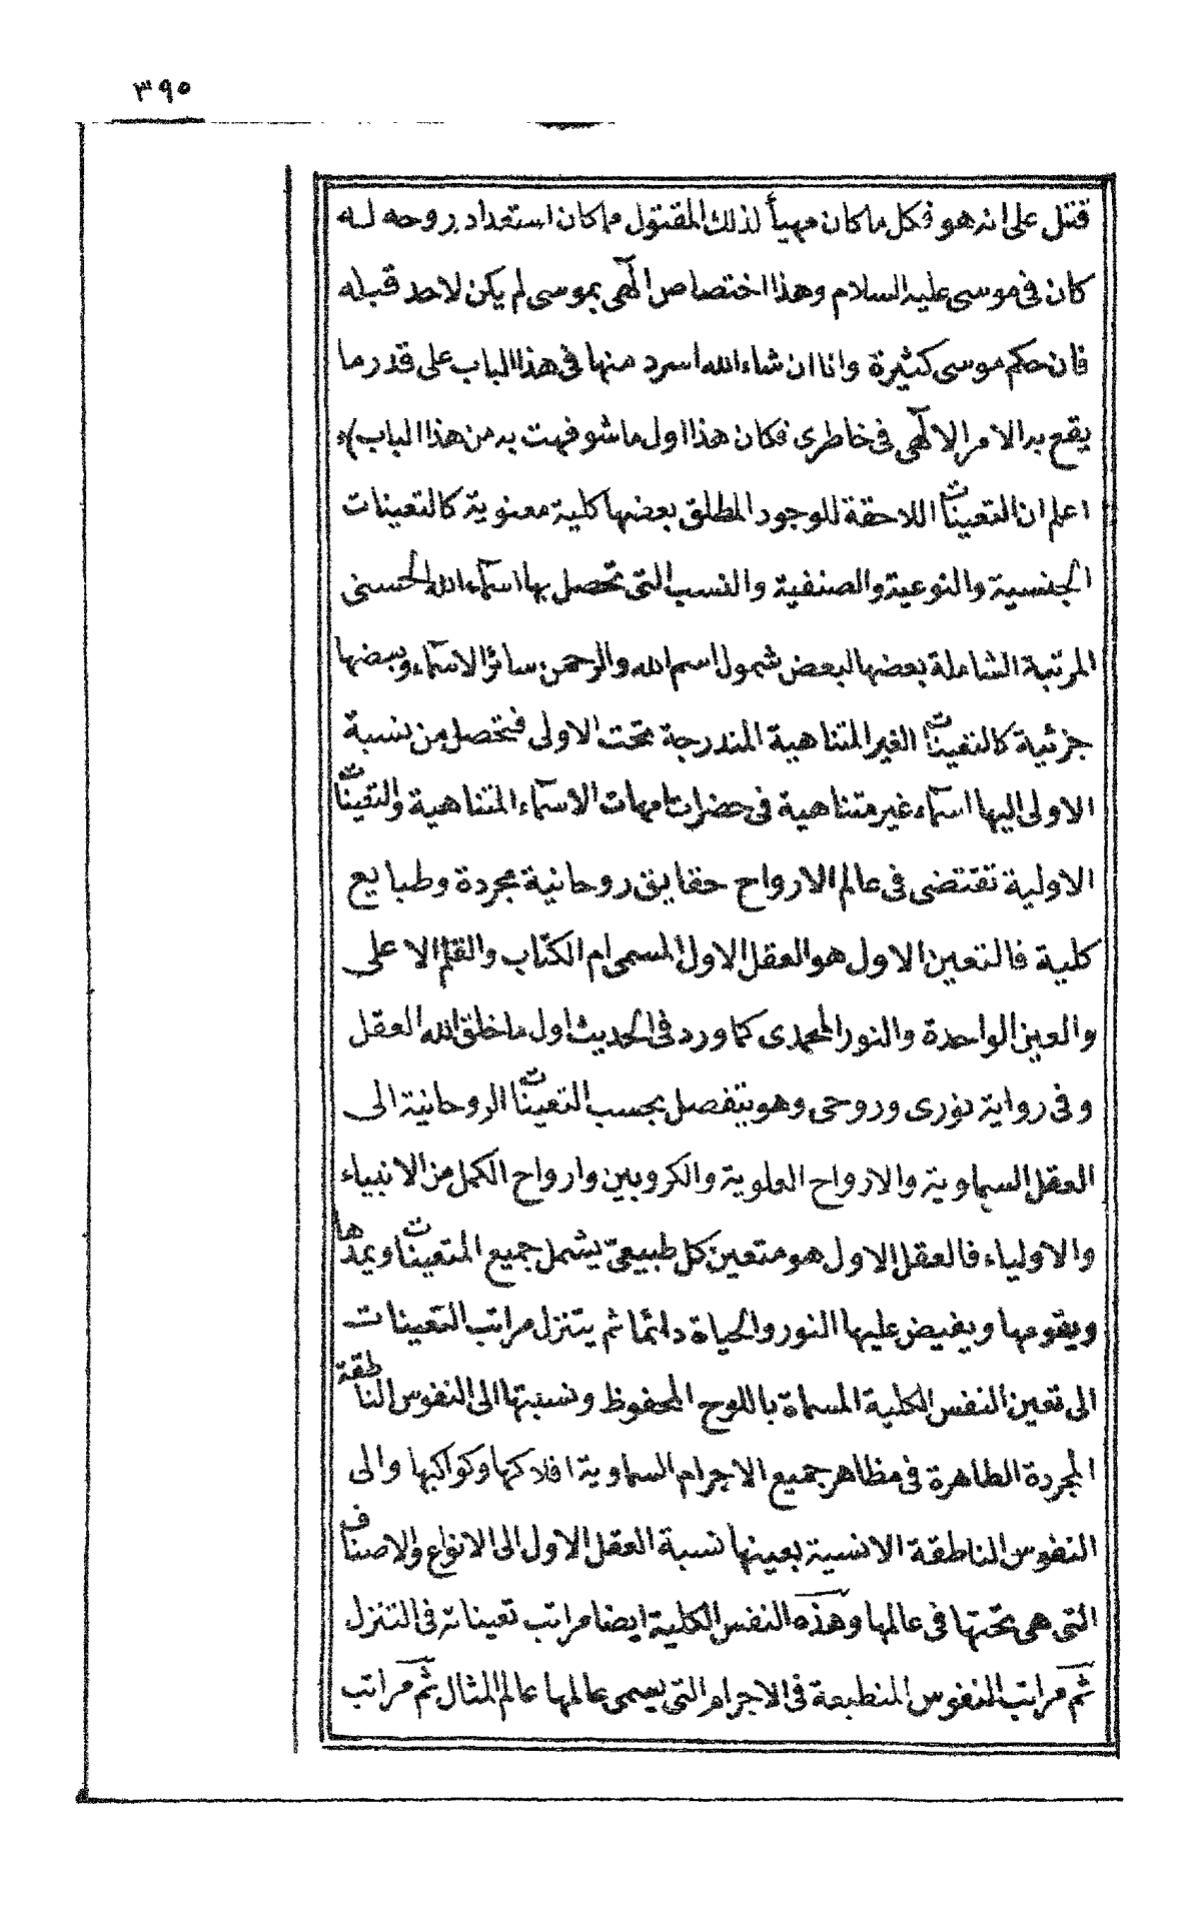 ٣٩٥
قتل على انه هو فكل ما كان مهيأ لذلك المقتول مما كان استعداد روحه له
كان فى موسى عليه السلام وهذا اختصاص الٓهى بموسى لم يكن لاحد قبله
فان حكم موسى كثيرة وانا ان شاء الله اسرد منها فى هذا الباب على قدر ما
يقع به الامر الالٓهى فى خاطرى فكان هذا اول ما شوفهت به من هذا الباب)ء
اعلم ان التعينات اللاحقة للوجود المطلق بعضها كلية معنوية كالتعينات
الجنسية والنوعية والصنفية والنسب التى تحصل بها اسمآء الله الحسنى
المرتبة الشاملة بعضها لبعض شمول اسم الله والرحمن سائر الاسمآء وبعضها
جزئية كالتعينات الغير المتناهية المندرجة تحت الاولى فتحصل من نسبة
الاولى اليها اسمآء غير متناهية فى حضرات امهات الاسمآء المتناهية والتعينات
الاولية تقتضى فى عالم الارواح حقايق روحانية مجردة وطبايع
كلية فالتعين الاول هو العقل الاول المسمى ام الكتاب والقلم الاعلى
والعين الواحدة والنور المحمدى كما ورد فى الحديث اول ما خلق الله العقل
وفى رواية نورى وروحى وهو يتفصل بحسب التعينات الروحانية الى
العقل السماوية والارواح العلوية والكروبيين وارواح الكمل من الانبياء
والاولياء فالعقل الاول هو متعين كل طبيعىّ يشمل جميع المتعينات ويمدها
ويقومها ويفيض عليها النور والحياة دائما ثم يتنزل مراتب التعينات
الى تعين النفس الكلية المسماة باللوح المحفوظ ونسبتها الى النفوس الناطقة
المجردة الظاهرة فى مظاهر جميع الاجرام السماوية افلاكها وكواكبها والى
النفوس الناطقة الانسية بعينها نسبة العقل الاول الى الانواع والاصناف
التى هى تحتها فى عالمها وهذه النفس الكلية ايضا مراتب تعيناته فى التنزل
ثم مراتب النفوس المنطبعة فى الاجرام التى يسمى عالمها عالم المثال ثم مراتب